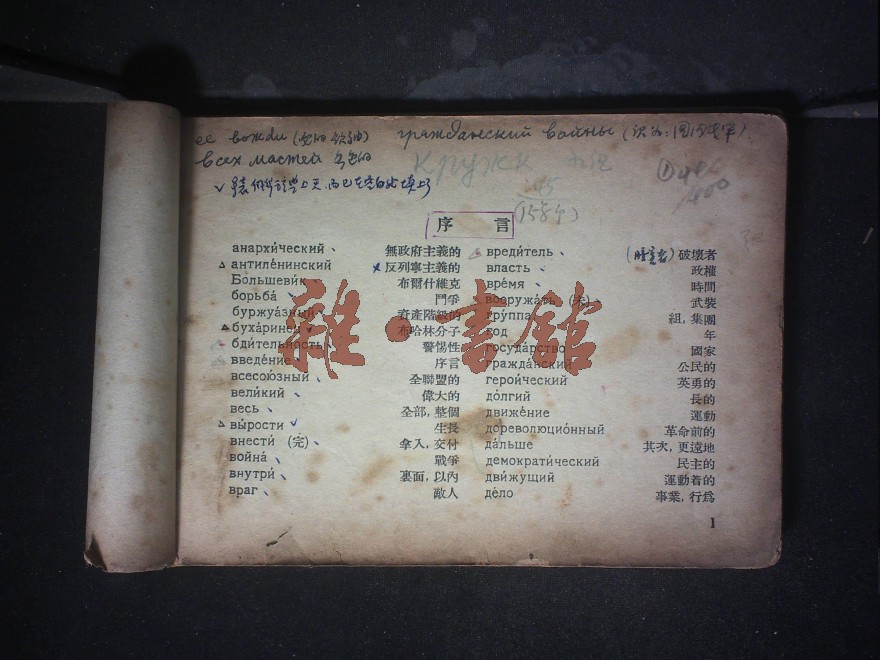 ее вожди гражданский войны
всех мастей
Кружк
(155个)
序 言
анархи́ческий 無政府主義的
антиле́нинский 反列寧主義的
Большеви́к 布爾什維克
борьба́ 鬥爭
буржуа́зный 資產階級的
буха́ринец 布哈林分子
бди́тельность 警惕性
введе́ние 序言
всесою́зный 全聯盟的
вели́кий 偉大的
весь 全部, 整個
вы́рости 生長
внести́ (完) 拿入, 交付
война́ 戰爭
внутри́ 裏面, 以內
враг 敵人
вреди́тель 破壞者
власть 政權
вре́мя 時間
вооружа́ть (未) 武裝
гру́ппа 組, 集團
год 年
госуда́рство 國家
гражда́нский 公民的
герои́ческий 英勇的
до́лгий 長的
движе́ние 運動
дореволюцио́нный 革命前的
да́льше 其次, 更遠地
демократи́ческий 民主的
дви́жущий 運動着的
де́ло 事業, 行為
1
雜·書館